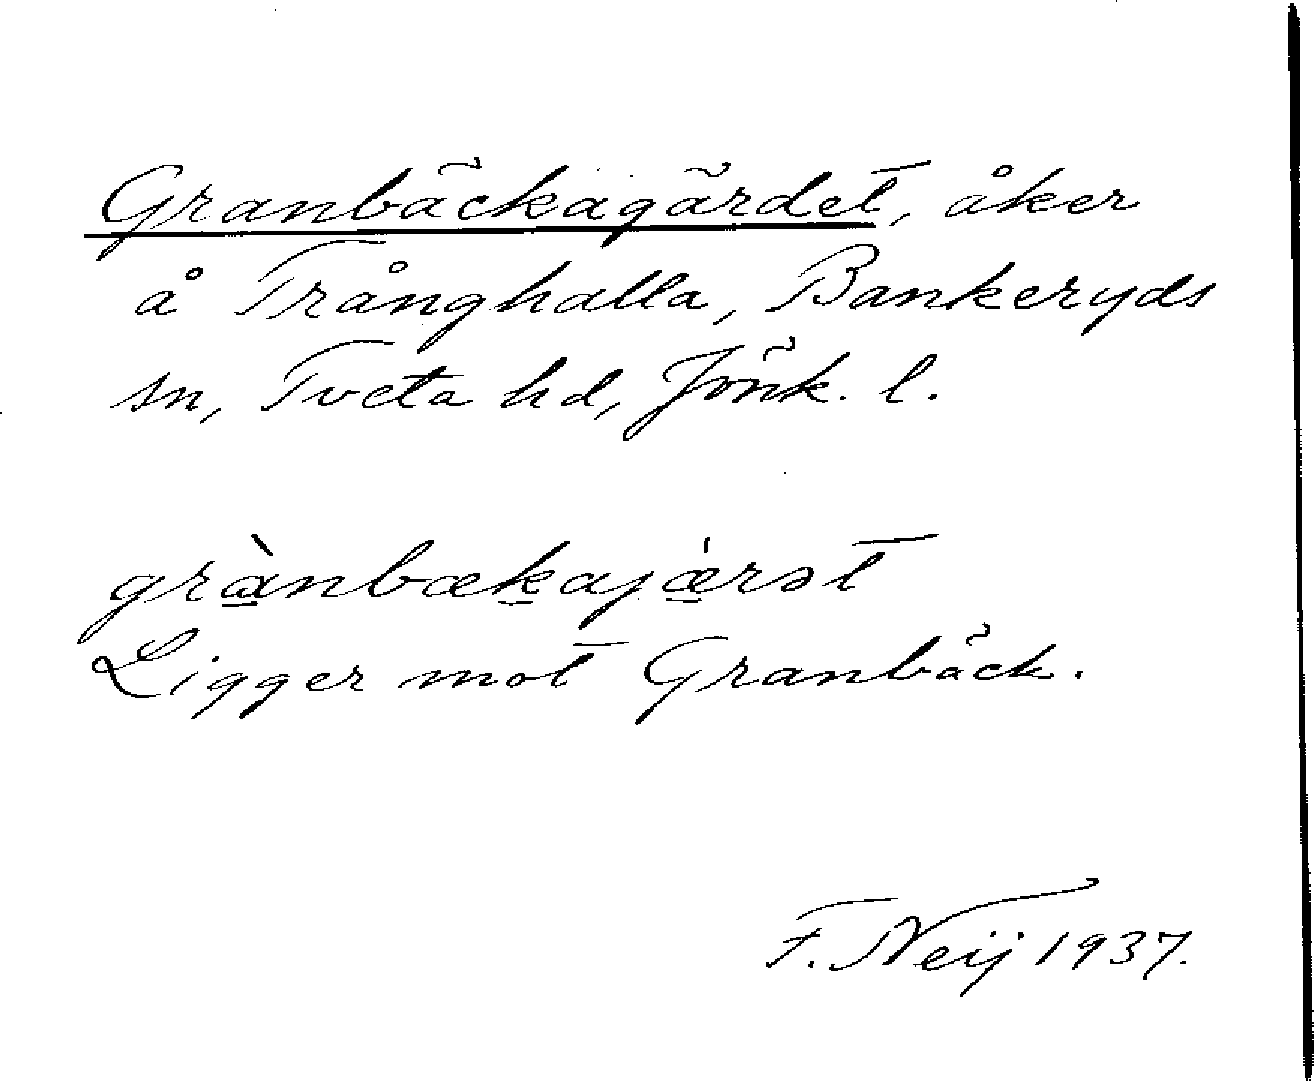 Granbäckagärdet, åker
å Trånghalla, Bankeryds
sn, Tveta hd, Jönk. l.
gràn̲bæk̲ajǽ̲rət
Ligger mot Granbäck.
F. Neij 1937.